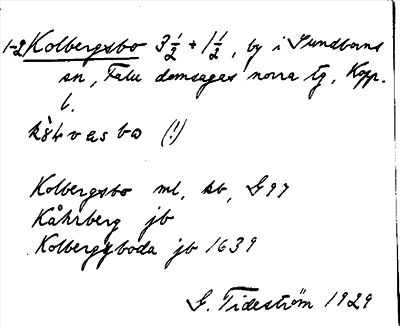 1-2 Kolbergsbo 3 1/2 + 1 1/2, by i Sundborns
sn, Falu domsagas norra tg, Kopp.
l.
bo (!)
Kolbergsbo ml, kb, G 97
Kåhrberg jb
Kolbergzboda jb 1639
G. Tideström 1929